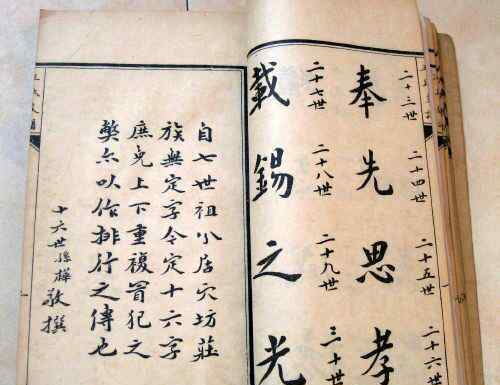 二十三世 二十四世 二十五世 二十六世
奉先思孝
二十七世 二十八世 二十九世 三十世
載錫之光
自七世祖小居穴坊莊
族無定字今定十六字
庶免上下重複冒犯之
弊亦以作排行之傳也
十六世孫樺敬撰